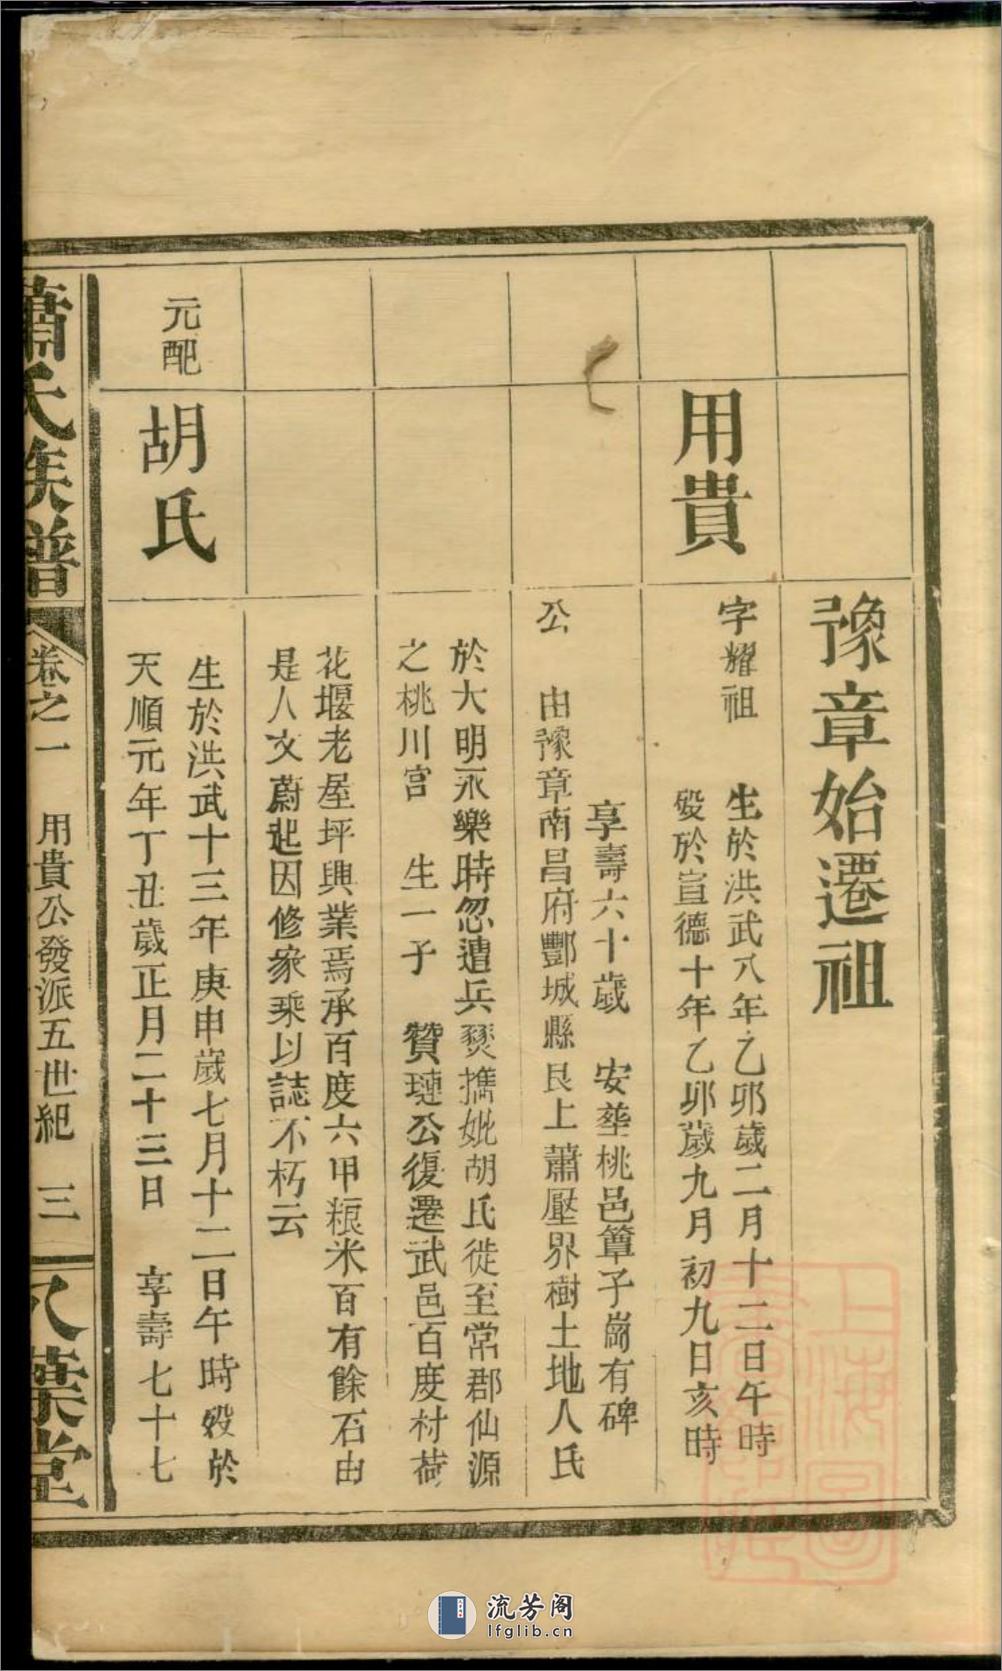 豫章始遷祖
用貴
字耀祖
生於洪武八年乙卯歲二月十二日午時
歿於宣德十年乙卯歲九月初九日亥時
享壽六十歲 安塟桃邑簟子崗有碑
公 由豫章南昌府酆城縣艮上蕭壓界樹土地人氏
於大明永樂時忽遭兵燹攜妣胡氏徙至常郡仙源
之桃川宫 生一子 贊璉公復遷武邑百度村荷
花堰老屋坪興業焉承百度六甲粮米百有餘石由
是人文蔚起因修家乘以誌不朽云
元配
胡氏
生於洪武十三年庚申歲七月十二日午時歿於
天順元年丁丑歲正月二十三日 享壽七十七
蕭氏族譜
卷之一 用貴公發派五世紀 三
八葉堂
流芳阁
lfglib.cn